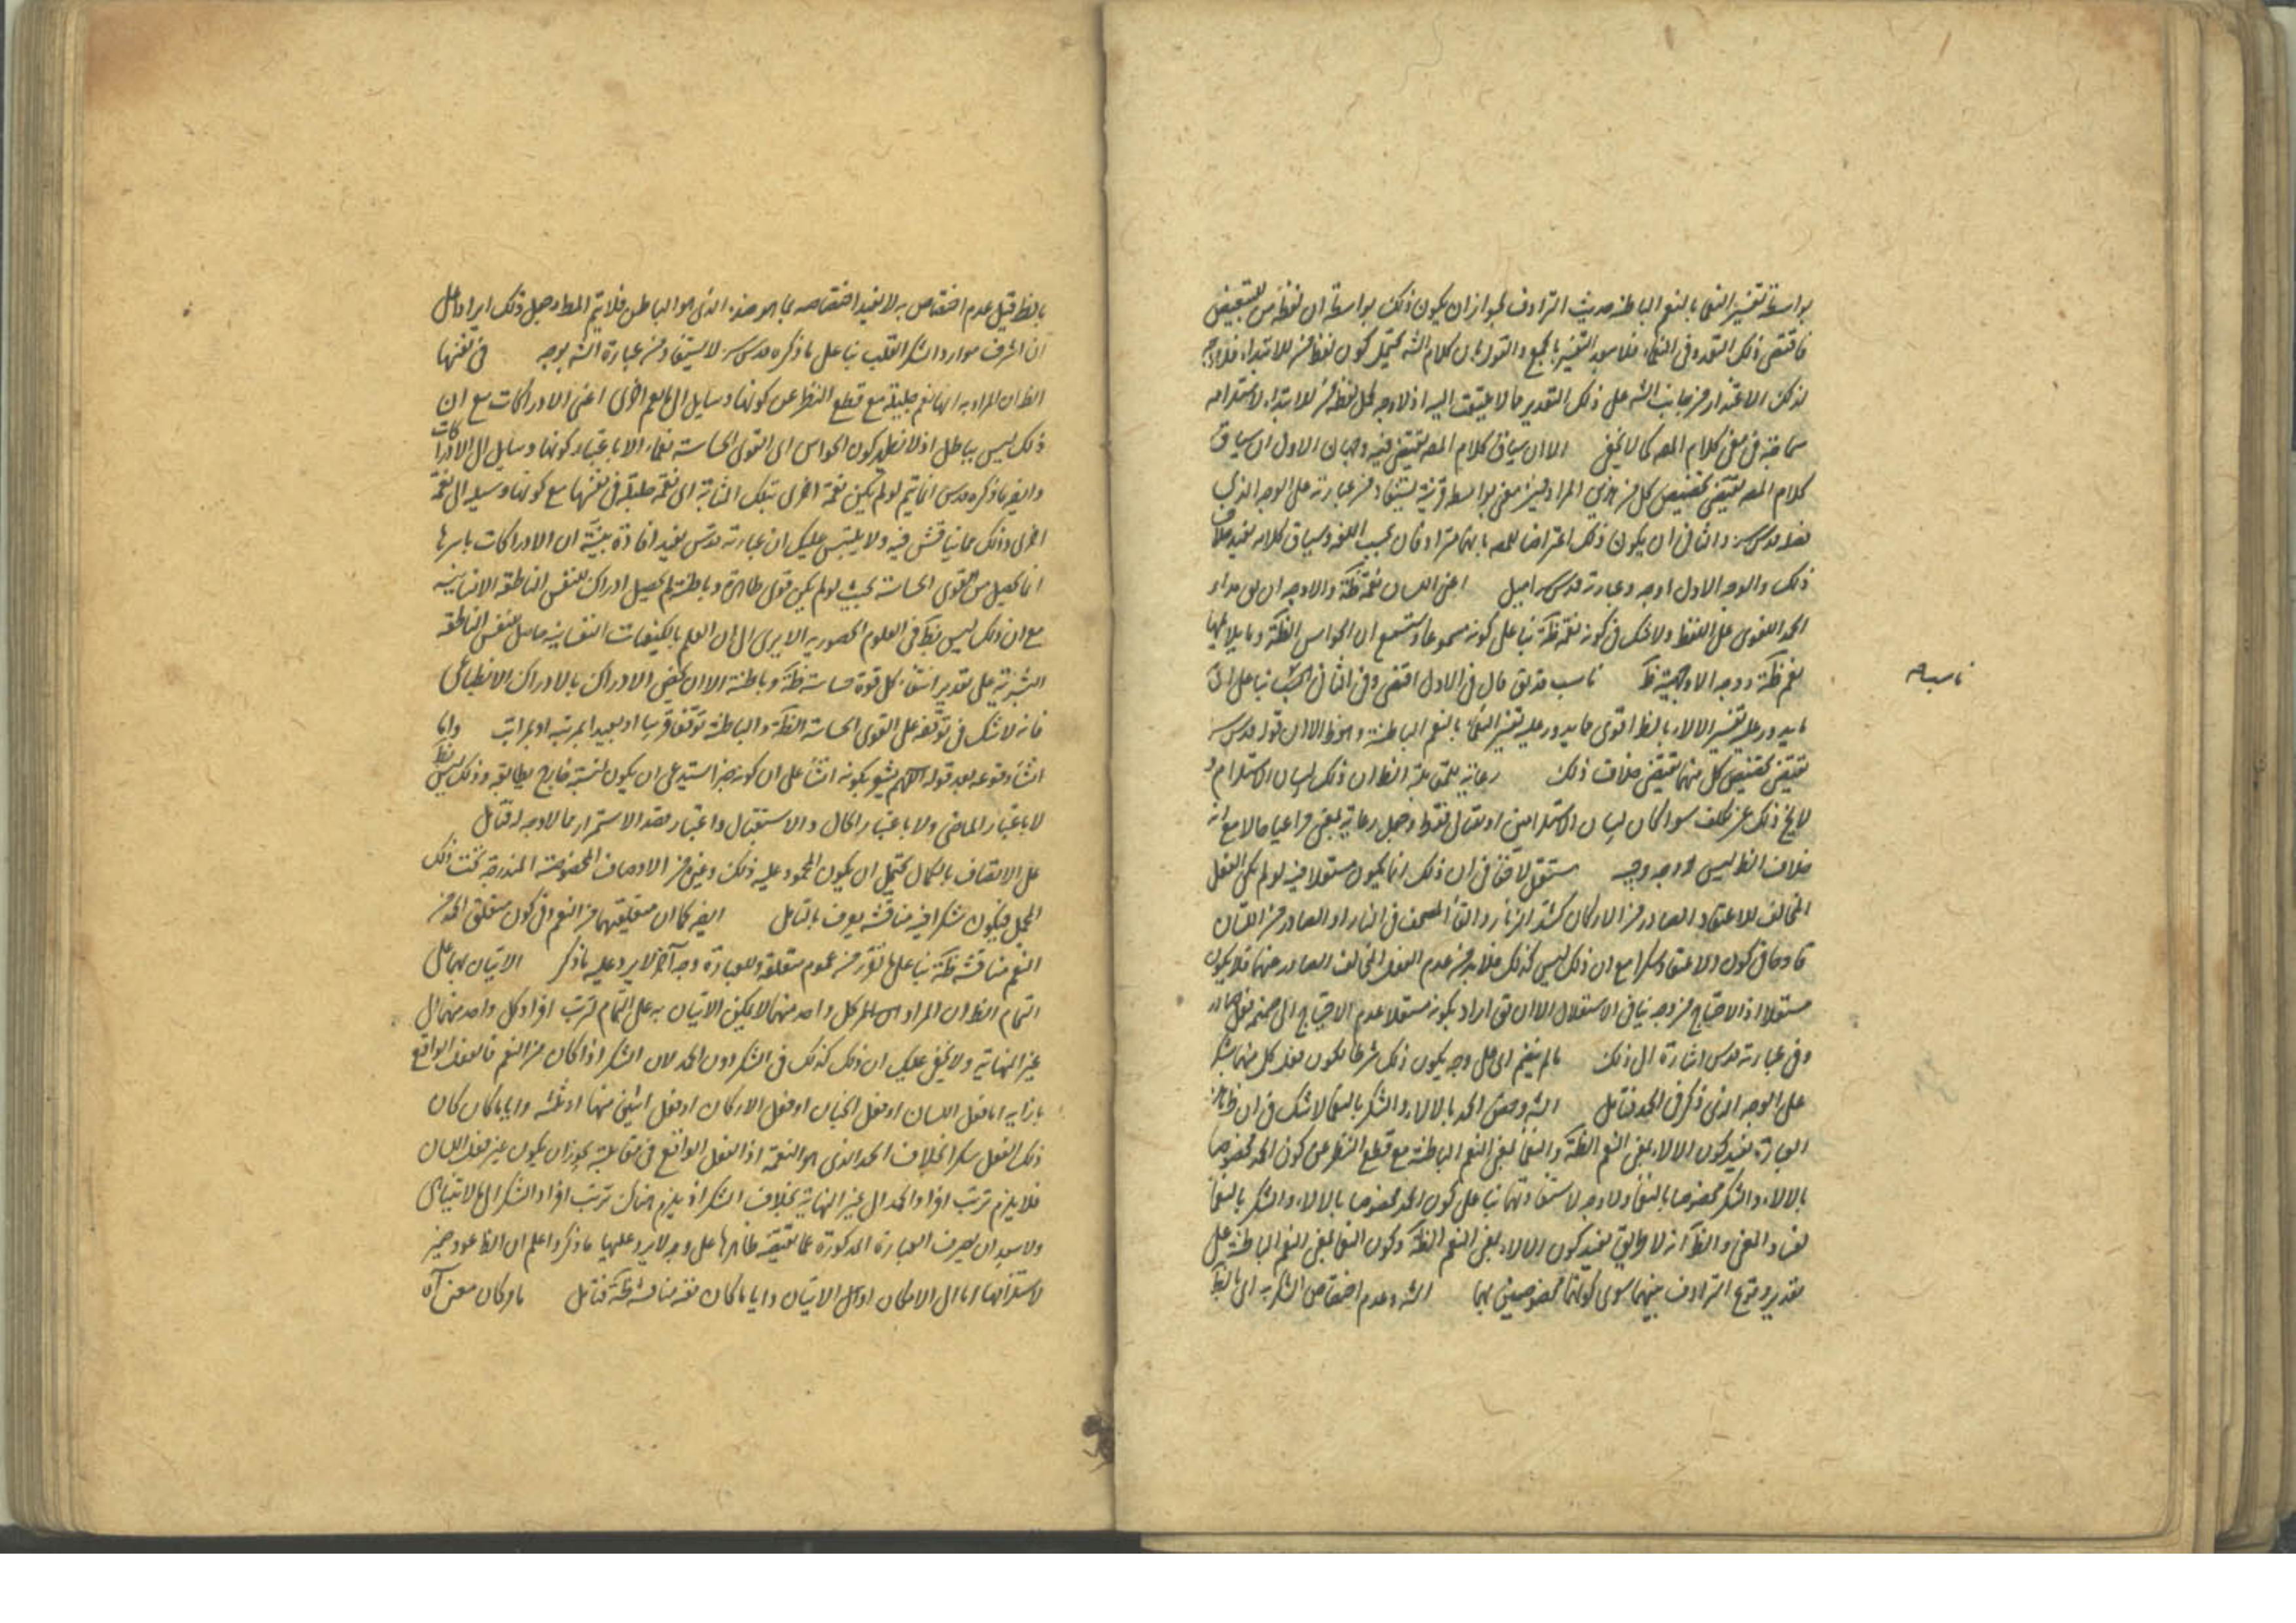 بواسطة تفسير النعماء بالنعم الباطنة حديث الترادف لجواز ان يكون ذلك بواسطة ان لفظ من للتبعيض
فاقتضى ذلك التعدد في النعماء فلا بعد التفسير بالجمع والقول بان كلام الشه يحتمل كون لفظ من للابتداء فلا
لذلك الاعتذار من جانب الشه على ذلك التقدير مما لا يلتفت اليه اذ لا وجه لحمل لفظ من للابتداء لاستلزامه
سماجة في معنى كلام المصه كما لا يخفى الا ان سياق كلام المصه يقتضى فيه وجهان الاول ان سياق
كلام المصه يقتضى تخصيص كل من هذين المرادفين بمعنى بواسطة قرينة يستفاد من عبارته على الوجه الذي
فعله قدس سره والثاني ان يكون ذلك اعتراضا للمصه بانهما مترادفان بحسب اللغة وسياق كلامه يفيد خلاف
ذلك والوجه الاول اوجه وعبارته قدس سره اميل اعنى اللسان نعمة ظة والاوجه ان يق مدار
الحمد اللغوى على اللفظ ولا شك في كونه نعمة ظة بناء على كونه مسموعا والسمع ان الحواس الظة وما يلايمها
نعم ظة ووجه الاوجهية ظ ناسب قد يق قال في الاول اقتضى وفي الثاني ناسب بناء على ان
ناسب
ما يدور عليه تفسير الالاء بالظ اقوى مما يدور عليه تفسير النعماء بالنعم الباطنة وهو ظ الا ان قوله قدس سره
يقتضى تخصيص كل منهما يقتضى خلاف ذلك رعاية للمقابلة الظ ان ذلك لبيان الاستلزام و
لا يخ ذلك عن تكلف سواء كان لبيان الاستلزامين او مقابل فقط وجعل رعاية بمعنى مراعيا حالا مع انه
خلاف الظ ليس له وجه وجيه مستقل لا خفاء في ان ذلك انما يكون مستقلا فيه لو لم يكن الفعل
المخالف للاعتقاد الصادر من الاركان كشد الزنار والقاء المصحف في النار او الصادر من اللسان
قادحا في كون الاعتقاد شكرا مع ان ذلك ليس كذلك فلا بد من عدم الفعل المخالف الصادر منهما فلا يكون
مستقلا اذ الاحتياج من وجه ينافى الاستقلال الا ان يق اراد بكونه مستقلا عدم الاحتياج الى ضم فعل
وفي عبارته قدس اشارة الى ذلك ما لم ينضم اى على وجه يكون ذلك شرطا لكون فعل كل منهما شكرا
على الوجه الذى ذكر في الحمد فتامل الشه وخص الحمد بالالاء والشكر بالنعماء لا شك في ان ظاهر
العبارة يفيد كون الالاء بمعنى النعم الظة والنعماء بمعنى النعم الباطنة مع قطع النظر عن كون الحمد مخصوصا
بالالاء والشكر مخصوصا بالنعماء ولا وجه لاستفادتهما بناء على كون الحمد مخصوصا بالالاء والشكر بالنعماء
لفساد المعنى والظ انه لا طايق يفيد كون الالاء بمعنى النعم الظة وكون النعماء بمعنى النعم الباطنة على
تقدير وقوع الترادف بينهما سوى كونهما مخصوصين بهما الشه وعدم اختصاص الشكر به اى بالظ
بالظ قيل عدم اختصاص به لا يفيد اختصاصه بما هو ضده الذى هو الباطن فلا يتم المط وجعل ذلك ايراد على
ان اشرف موارد الشكر القلب بناء على ما ذكره قدس سره لا يستفاد من عبارة الشه بوجه في نفسها
الظ ان المراد به انها نعم جليلة مع قطع النظر عن كونها وسايل الى نعم اخرى اعنى الادراكات مع ان
ذلك ليس بباطل اذ لا نظهر كون الحواس اى القوى الحاسة نعماء الا باعتبار كونها وسايل الى الادراكات
وايضه ما ذكره قدس انما يتم لو لم يكن نعمة اخرى بتلك المثابة اى نعمة جليلة في نفسها مع كونها وسيلة الى نعمة
اخرى وذلك مما يناقش فيه ولا يلتبس عليك ان عبارته قدس يفيد افادة بينة ان الادراكات باسرها
انما تحصل من القوى الحاسة بحيث لو لم يكن قوى ظاهرة وباطنة لم يحصل ادراك للنفس الناطقة الانسانية
مع ان ذلك ليس بظ في العلوم الحضورية الا يرى الى ان العلم بالكيفيات النفسانية حاصل للنفس الناطقة
البشرية على تقدير انتفاء كل قوة حاسة ظة وباطنة الا ان يخص الادراك بالادراك الانطباعى
فانه لا شك في توقفه على القوى الحاسة الظة والباطنة توقفا قريبا او بعيدا بمرتبة او بمراتب وانما
انشأ وقوعه بعد قوله اللهم يشعر بكونه انشاء على ان كونه خبرا يستدعى ان يكون لنسبة خارج يطابقه وذلك ليس بظ
لا باعتبار الماضى ولا باعتبار الحال والاستقبال واعتبار قصد الاستمرار مما لا وجه له فتامل
على الاتصاف بالكمال يحتمل ان يكون المحمود عليه ذلك وغيره من الاوصاف المخصوصة المندرجة تحت ذلك
المجمل فيكون شكرا فيه مناقشة يعرف بالتامل ايضه كما ان متعلقهما من النعم الخ كون متعلق الحمد من
النعم مناقشة ظة بناء على ما تقرر من عموم متعلقه وللعبارة وجه آخر لا يرد عليه ما ذكر الاتيان بهما على
التمام الظ ان المراد ان كل واحد منهما لا يمكن الاتيان به على التمام لترتب افراد كل واحد منهما الى
غير النهاية ولا يخفى عليك ان ذلك كذلك في الشكر دون الحمد لان الشكر اذا كان من النعم فالفعل الواقع
بازايه اما فعل اللسان او فعل الجنان او فعل الاركان او فعل اثنين منها او ثلثة وايا ما كان كان
ذلك الفعل شكرا بخلاف الحمد الذى هو النعمة اذ الفعل الواقع في مقابلته يجوز ان يكون غير فعل اللسان
فلا يلزم ترتب افراد الحمد الى غير النهاية بخلاف الشكر اذ يلزم هناك ترتب افراد الشكر الى ما لا يتناهى
ولا يبعد ان يصرف العبارة المذكورة عما يقتضيه ظاهرها على وجه لا يرد عليها ما ذكر واعلم ان الظ عود ضمير
لاستلزامها اما الى الامكان او الى الاتيان وايا ما كان ففيه مناقشة ظة فتامل ما وكان معنى آه